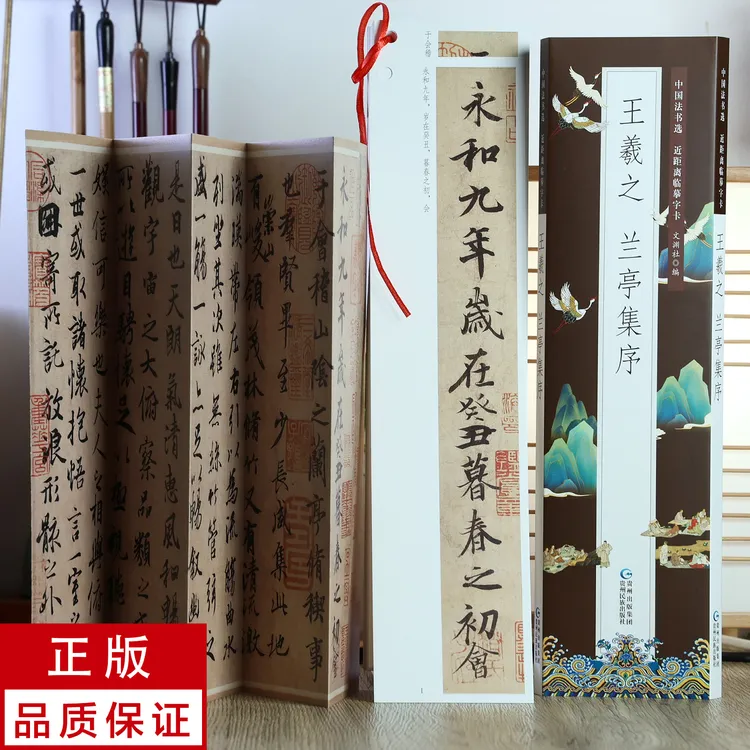 永和九年歲在癸丑暮春之初會
于會稽山陰之蘭亭脩稧事
也羣賢畢至少長咸集此地
有崇山峻領茂林脩竹又有清流激
湍暎帶左右引以為流觴曲水
列坐其次雖無絲竹管弦之
盛一觴一詠亦足以暢叙幽
是日也天朗氣清惠風和暢
觀宇宙之大俯察品類之
所以遊目騁懷足以極視
娛信可樂也夫人之相與
一世或取諸懷抱悟言一室之
或因寄所託放浪形骸之外
永和九年,岁在癸丑,暮春之初,会
于会稽
永和九年歲在癸丑暮春之初會
1
中国法书选 近距离临摹字卡
王羲之 兰亭集序
文渊社 编
贵州出版集团
贵州民族出版社
中国法书选 近距离临摹字卡
王羲之 兰亭集序
正版
品质保证